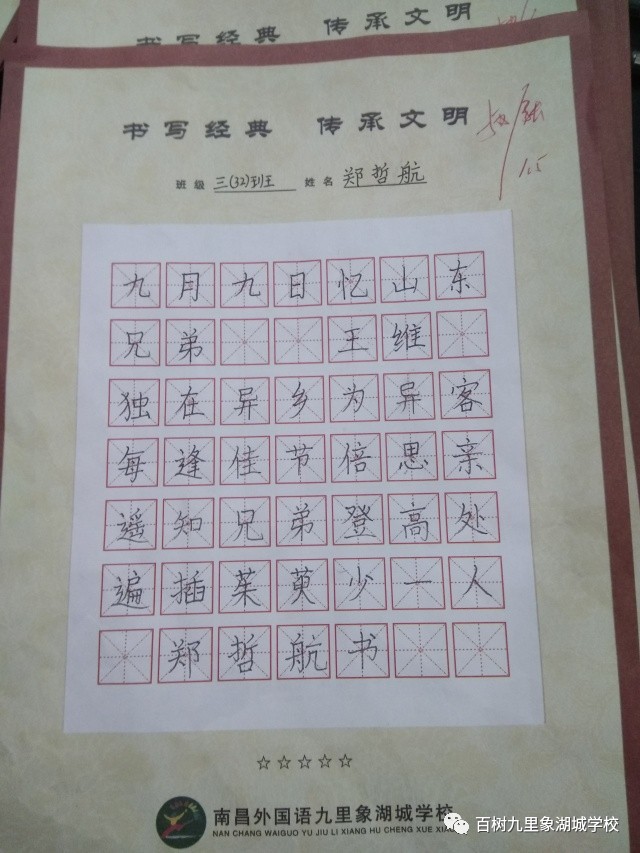 书写经典 传承文明
书写经典 传承文明
班级 三(32)班 姓名 郑哲航
九月九日忆山东
兄弟 王维
独在异乡为异客
每逢佳节倍思亲
遥知兄弟登高处
遍插茱萸少一人
郑哲航书
☆☆☆☆☆
南昌外国语九里象湖城学校
NAN CHANG WAIGUO YU JIU LI XIANG HU CHENG XUE XIAO
百树九里象湖城学校